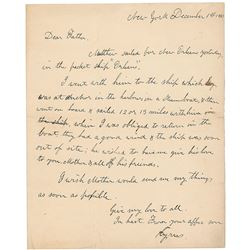 New York December 1st
Dear Father.
sailed for New Orleans yesterday
in the packet ship "Orleans".
I went with him to the ship which
was at anchor in the harbour in a Steamboat, & then
went on board & sailed 12 or 15 miles with him in
the ship, when I was obliged to return in the
boat, they had a good wind & the ship was soon
out of site; he wished to have me give his love
to you Mother & all of his friends.
I wish Mother would send me my things
as soon as possible.
Give my love to all.
In haste from your affec son
Cyrus